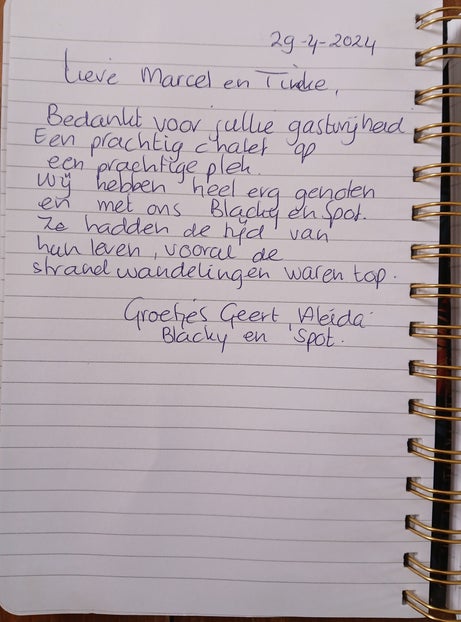 29-4-2024
Lieve Marcel en Tinke,
Bedankt voor jullie gastvrijheid
Een prachtig chalet op
een prachtige plek.
Wij hebben heel erg genoten
en met ons Blacky en Spot.
Ze hadden de tijd van
hun leven, vooral de
strandwandelingen waren top.
Groetjes Geert, Aleida
Blacky en Spot.